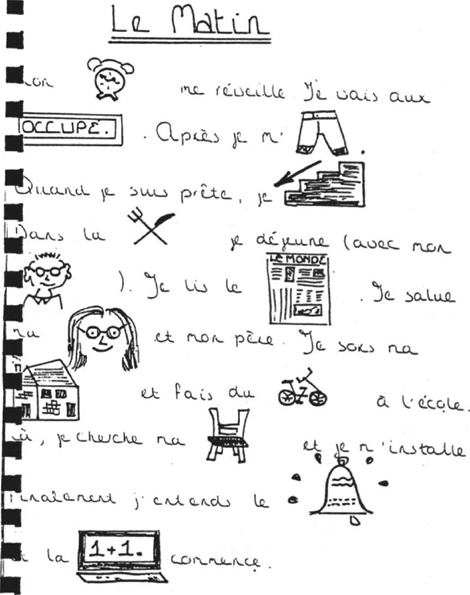 Le Matin
me réveille Je vais aux
OCCUPE. . Après je m'
Quand je suis prête, je
Dans la je déjeune (avec mon
LE MONDE
). Je lis le . Je salue
ma et mon père. Je sors ma
et fais du à l'école.
Là, je cherche ma et je m'installe
Finalement j'entends le
1+1.
et la commence.